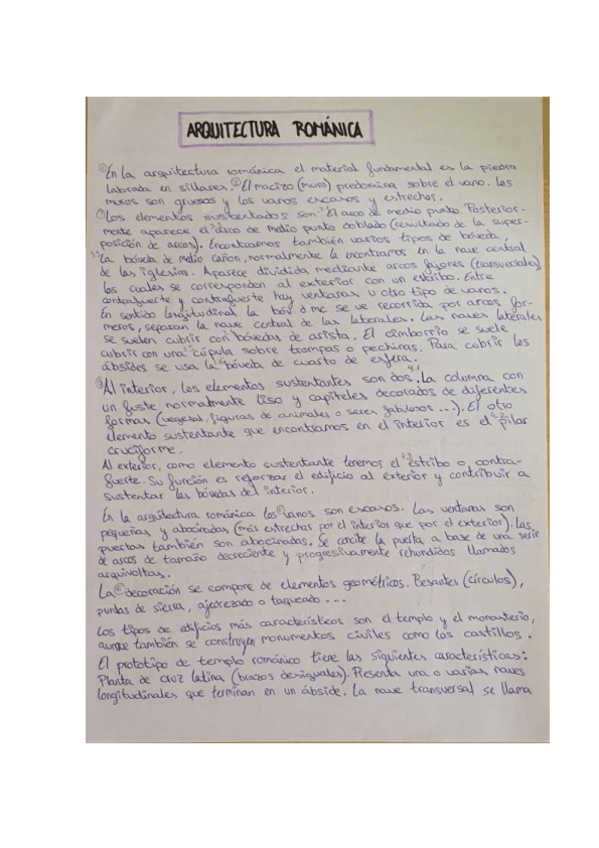 ARQUITECTURA ROMÁNICA
① En la arquitectura románica el material fundamental es la piedra
labrada en sillares. ② El macizo (muro) predomina sobre el vano. Los
muros son gruesos y los vanos escasos y estrechos.
Los elementos sustentados son: El arco de medio punto. Posterior-
mente aparece el arco de medio punto doblado (resultado de la super-
posición de arcos). Encontramos también varios tipos de bóveda,
La bóveda de medio cañon, normalmente la encontramos en la nave central
de las iglesias. Aparece dividida mediante arcos fajones (transversales),
los cuales se corresponden al exterior con un estribo. Entre
contrafuerte y contrafuerte hay ventanas u otro tipo de vanos.
En sentido longitudinal la bóv d me se ve recorrida por arcos for-
meros, separan la nave central de las laterales. Las naves laterales
se suelen cubrir con bóvedas de arista. El cimborrio se suele
cubrir con una cúpula sobre trompas o pechinas. Para cubrir los
ábsides se usa la bóveda de cuarto de esfera.
Al interior, los elementos sustentantes son dos. 4.1 La columna con
un fuste normalmente liso y capiteles decorados de diferentes
formas (vegetal, figuras de animales o seres fabulosos ...). El otro
elemento sustentante que encontramos en el interior es el 4.2 pilar
cruciforme.
Al exterior, como elemento sustentante tenemos el 4.3 estribo o contra-
fuerte. Su función es reforzar el edificio al exterior y contribuir a
sustentar las bóvedas del interior.
En la arquitectura románica los vanos son escasos. Las ventanas son
pequeñas y abocinadas (más estrechas por el interior que por el exterior). Las
puertas también son abocinadas. Se la puerta a base de una serie
de arcos de tamaño decreciente y progresivamente rehundidos llamados
arquivoltas.
La decoración se compone de elementos geométricos. Besantes (círculos),
puntas de sierra, ajedrezado o taqueado ...
Los tipos de edificios más característicos son el templo y el monasterio,
aunque también se construyen monumentos civiles como los castillos.
El prototipo de templo románico tiene las siguientes características:
Planta de cruz latina (brazos desiguales). Presenta una o varias naves
longitudinales que terminan en un ábside. La nave transversal se llama